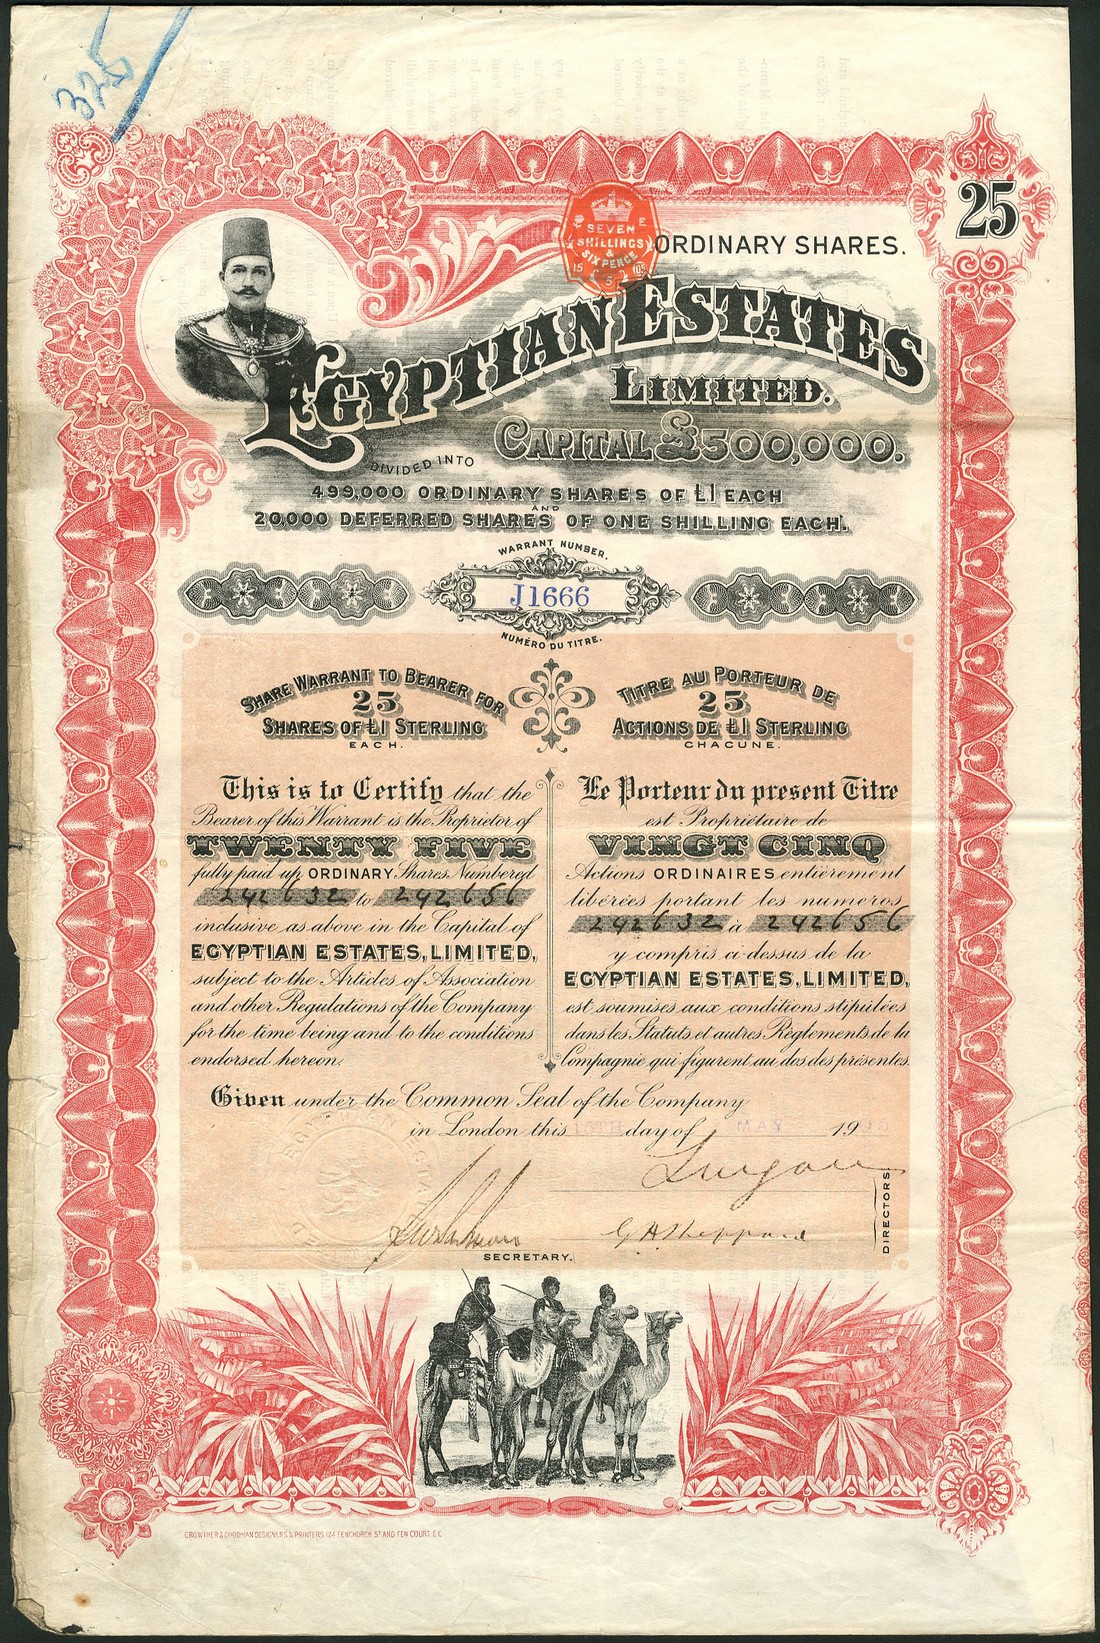 325
25
SEVEN
SHILLINGS
&
SIXPENCE
15 5 05
ORDINARY SHARES.
EGYPTIAN ESTATES
LIMITED.
CAPITAL £500,000.
DIVIDED INTO
499,000 ORDINARY SHARES OF £1 EACH
AND
20,000 DEFERRED SHARES OF ONE SHILLING EACH.
WARRANT NUMBER.
J1666
NUMÉRO DU TITRE.
SHARE WARRANT TO BEARER FOR
25
SHARES OF £1 STERLING
EACH.
TITRE AU PORTEUR DE
25
ACTIONS DE £1 STERLING
CHACUNE.
This is to Certify that the
Bearer of this Warrant is the Proprietor of
TWENTY FIVE
fully paid up ORDINARY Shares Numbered
242632 to 242656
inclusive as above in the Capital of
EGYPTIAN ESTATES, LIMITED,
subject to the Articles of Association
and other Regulations of the Company
for the time being and to the conditions
endorsed hereon.
Le Porteur du present Titre
est Propriétaire de
VINGT CINQ
Actions ORDINAIRES entièrement
libérées portant les numeros
242632 à 242656
y compris ci-dessus de la
EGYPTIAN ESTATES, LIMITED,
est soumises aux conditions stipulées
dans les Statuts et autres Règlements de la
Compagnie qui figurent au dos des présentes.
Given under the Common Seal of the Company
in London this 15TH day of MAY 19
DIRECTORS
G H Sheppard
SECRETARY.
CROWTHER & GOODMAN DESIGNERS & PRINTERS 124 FENCHURCH ST AND FEN COURT. E.C.